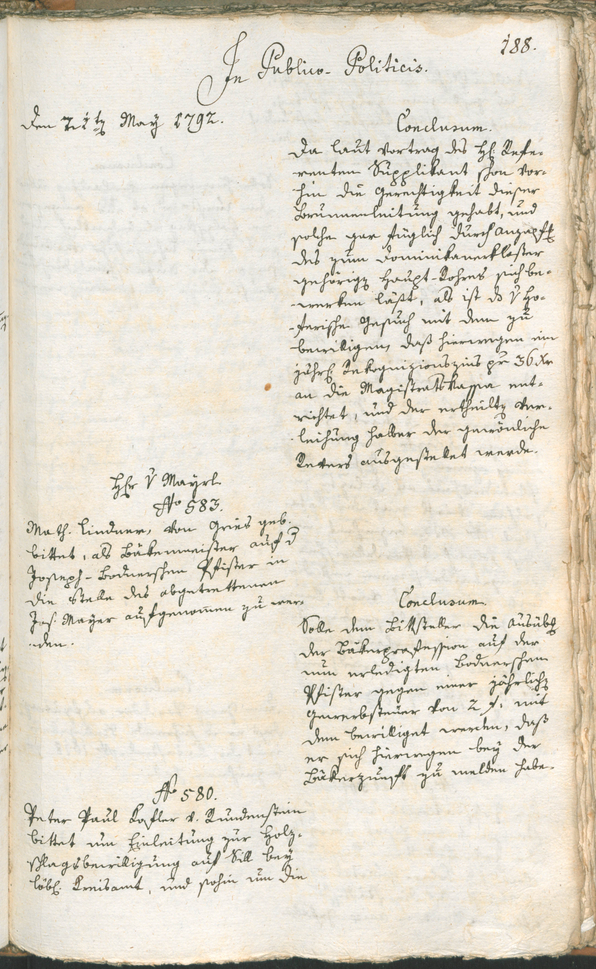 188.
In Publico-Politicis.
den 21t May 1792.
Conclusum.
Da laut Vortrag des H Refe-
renten Supplikant schon vor-
hin die Gerechtigkeit dieser
Brunnenleitung gehabt, und
solche gar füglich durch
des zum Dominikanerkloster
gehörigen Haupt-Rohres sich be-
-werken läßt, als ist
-ferische Gesuch mit dem zu
bewilligen, daß hierwegen ein
jährl Rekognizionszins pr 36 Xr
an die Magistratskassa ent-
richtet, und der ertheilten Ver-
-leihung halber der gewönliche
Revers ausgestellet werde.
H v Mayrl
No 583.
Math. Lindner, von Gries geb.
bittet, als Bäkenmeister auf d
Joseph-Bodnerschen Pfister in
die Stelle des abgetrettenen
Jos. Mayer aufgenomen zu wer-
-den.
Conclusum.
Solle dem Bittsteller die Ausübg
der Bäkenprofession auf der
nun erledigten Bodnerschen
Pfister gegen einer jährlichen
Gewerbsteuer von 2 f, mit
dem bewilliget werden, daß
er sich hierwegen bey der
Bäkerzunft zu melden habe.
No 580.
Peter Paul Kofler v. Rundenstein
bittet um Einleitung zur Holz-
schlagsbewilligung auf Sill bey
löbl. Kreisamt, und sohin um die